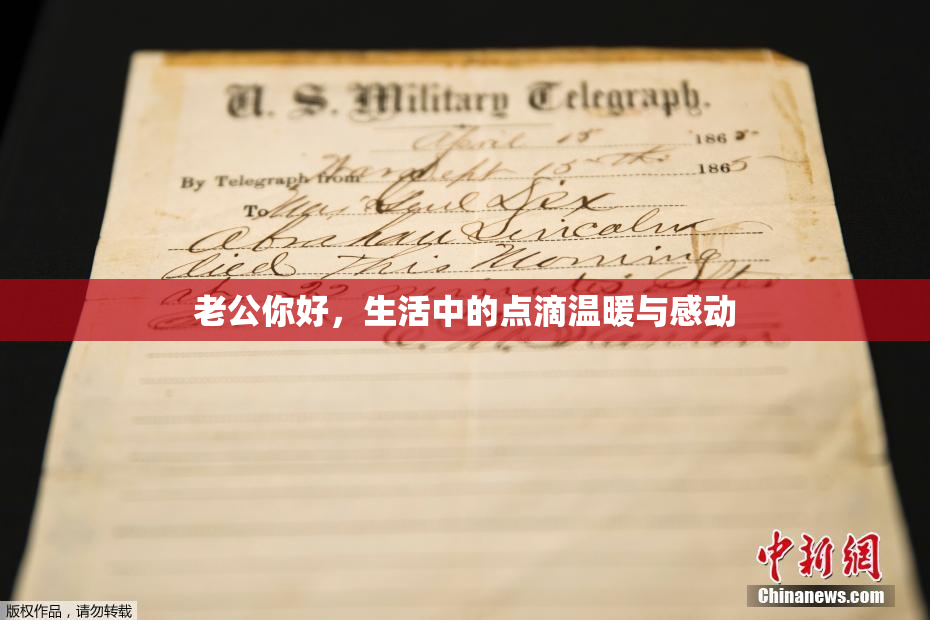 U. S. Military Telegraph.
April 15 1865
By Telegraph from War Dept 15th 1865
To Maj Genl Dix
Abraham Lincoln
died This Morning
at 22 minutes after
老公你好，生活中的点滴温暖与感动
中新网
Chinanews.com
版权作品，请勿转载